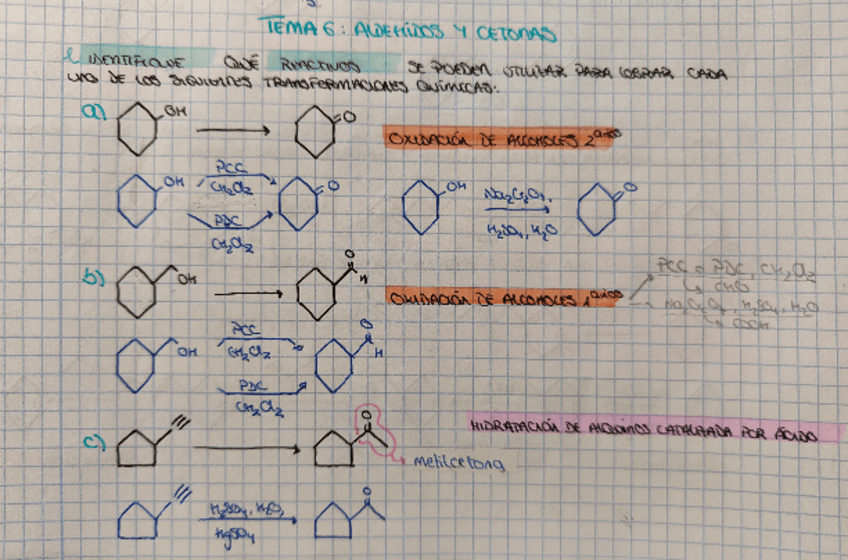 TEMA 6: ALDEHÍDOS Y CETONAS
1. IDENTIFIQUE QUÉ REACTIVOS SE PUEDEN UTILIZAR PARA LOGRAR CADA
UNO DE LOS SIGUIENTES TRANSFORMACIONES QUÍMICAS:
a) OH O OXIDACIÓN DE ALCOHOLES 2arios
OH PCC CH2Cl2 O
PDC CH2Cl2
OH Na2Cr2O7, H2SO4, H2O O
b) OH O H OXIDACIÓN DE ALCOHOLES 1arios
PCC o PDC, CH2Cl2
↳ CHO
Na2Cr2O7, H2SO4, H2O
↳ COOH
OH PCC CH2Cl2 O H
PDC CH2Cl2
c) O HIDRATACIÓN DE ALQUINOS CATALIZADA POR ÁCIDO
metilcetona
H2SO4, H2O, HgSO4 O